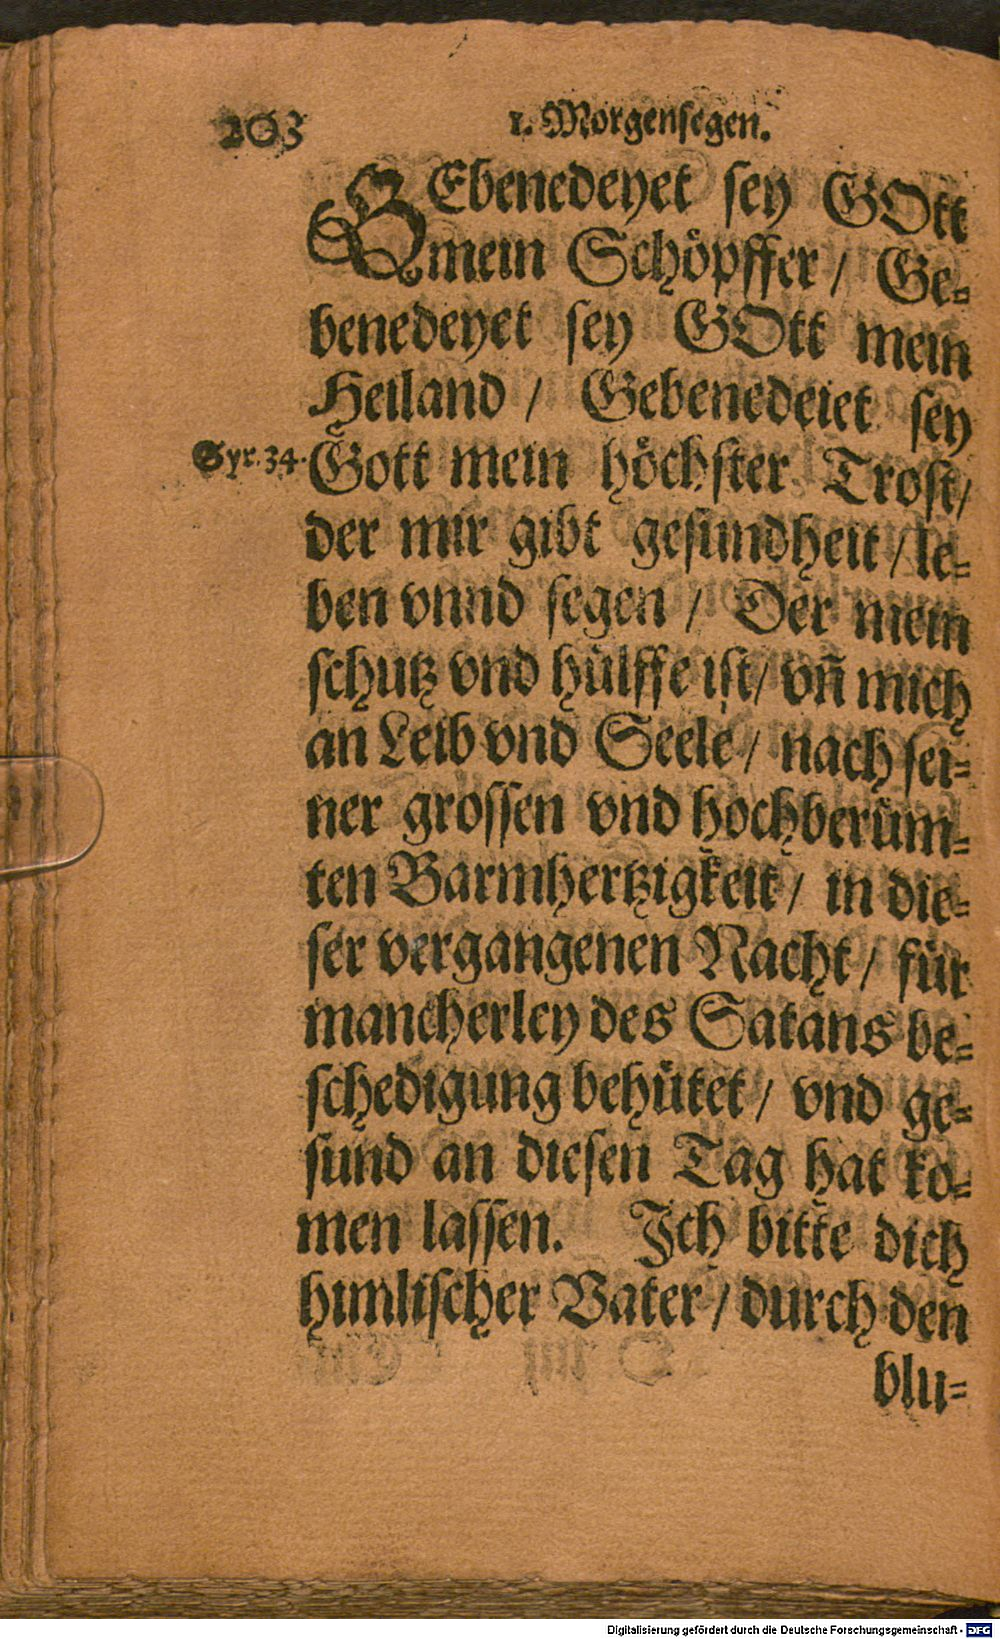 203 1. Morgensegen.
GEbenedeyet sey GOtt
mein Schöpffer / Ge-
benedeyet sey GOtt mein
Heiland / Gebenedeiet sey
Syr. 34. Gott mein höchster Trost/
der mir gibt gesundheit / le-
ben vnnd segen / Der mein
schutz vnd hülffe ist / vñ mich
an Leib vnd Seele / nach sei-
ner grossen vnd hochberüm-
ten Barmhertzigkeit / in die-
ser vergangenen Nacht / für
mancherley des Satans be-
schedigung behütet / vnd ge-
sund an diesen Tag hat ko-
men lassen. Ich bitte dich
himlischer Vater / durch den
blu-
Digitalisierung gefördert durch die Deutsche Forschungsgemeinschaft - DFG